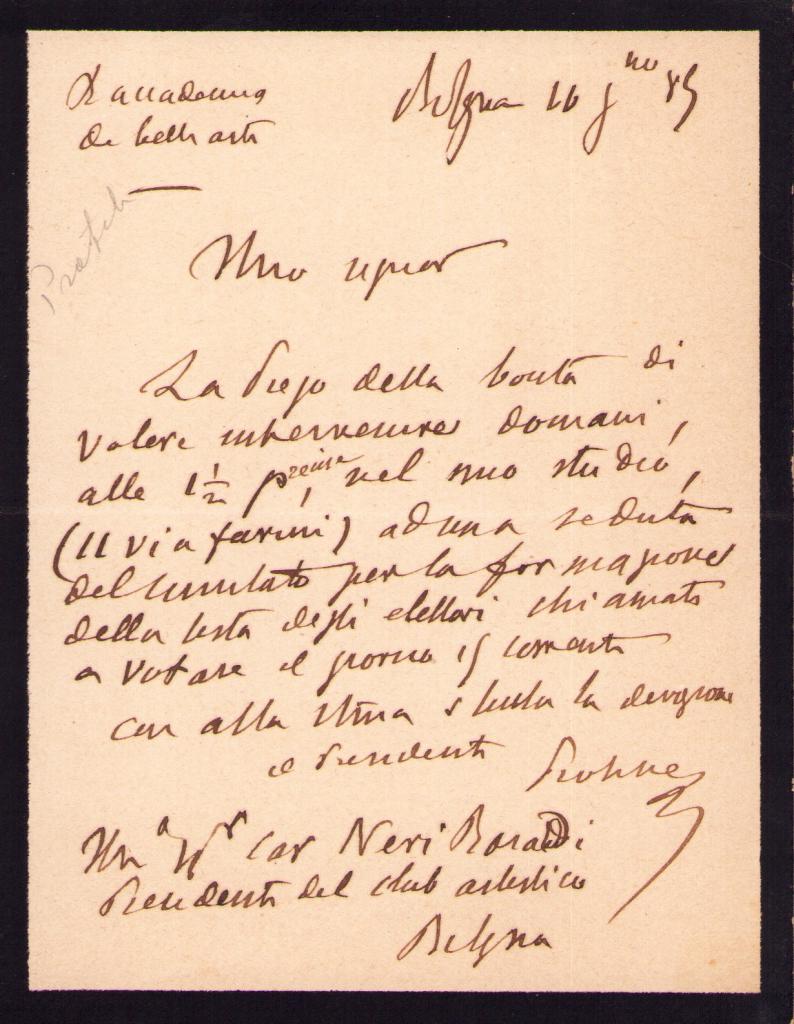 R accademia
di belle arti
Bologna 16 g.no 85
Illmo signor
La prego della bontà di
volere intervenire domani,
alle 1 1/2 precise, nel mio studio,
(11 via farini) ad una seduta
del comitato per la formazione
della lista degli elettori chiamati
a votare il giorno 15 corrente
con alta stima e tutta la devozione
il Presidente
Ill Sigr cav Neri Baraldi
Presidente del club artistico
Bologna